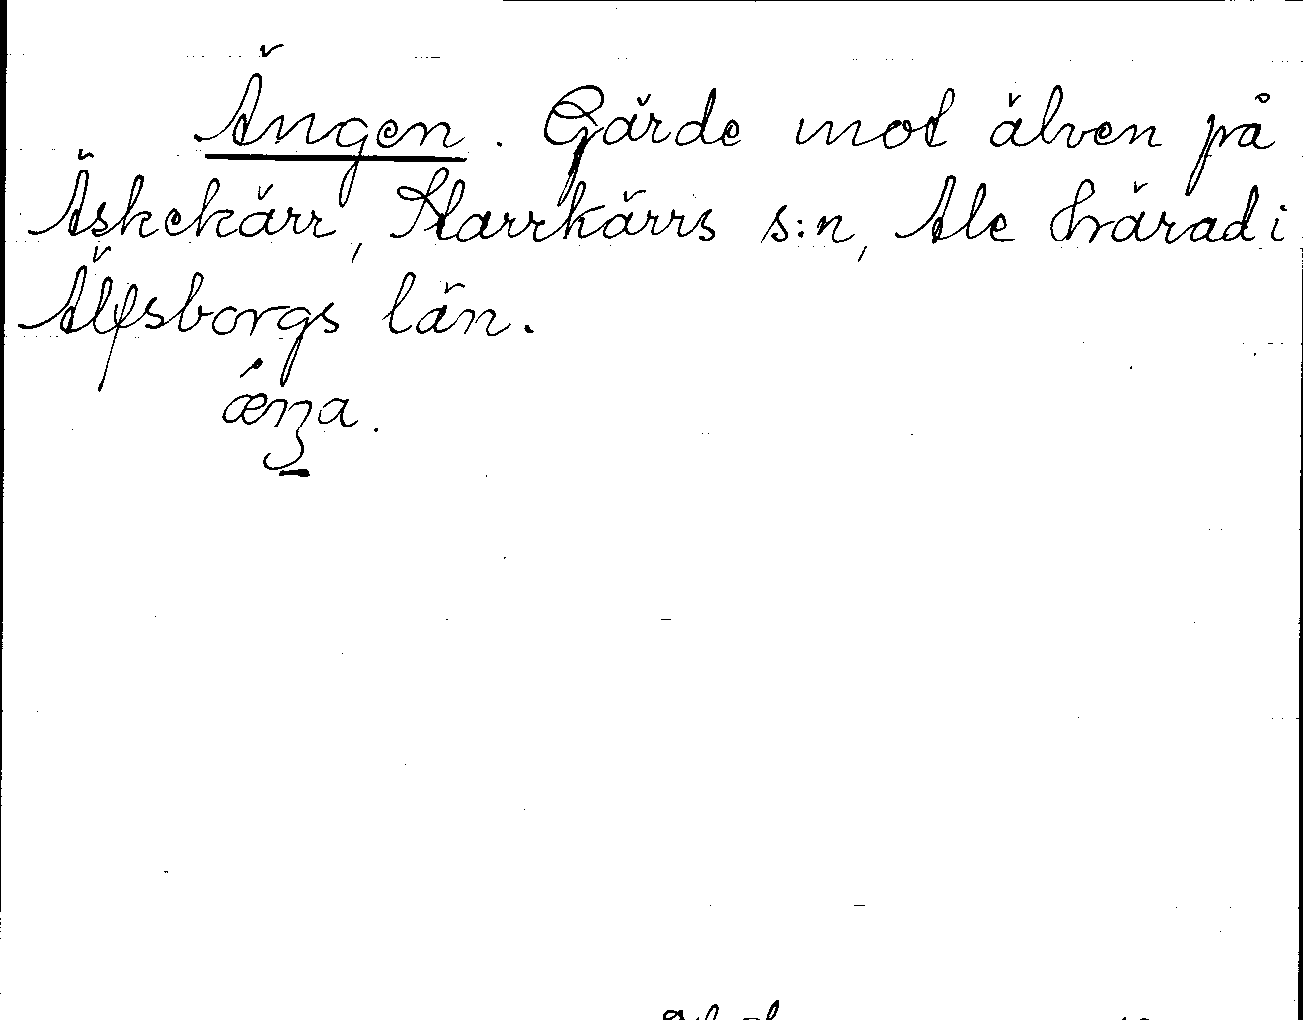 Ängen. Gärde mot älven på
Äskekärr, Starrkärrs s:n, Ale härad i
Älfsborgs län.